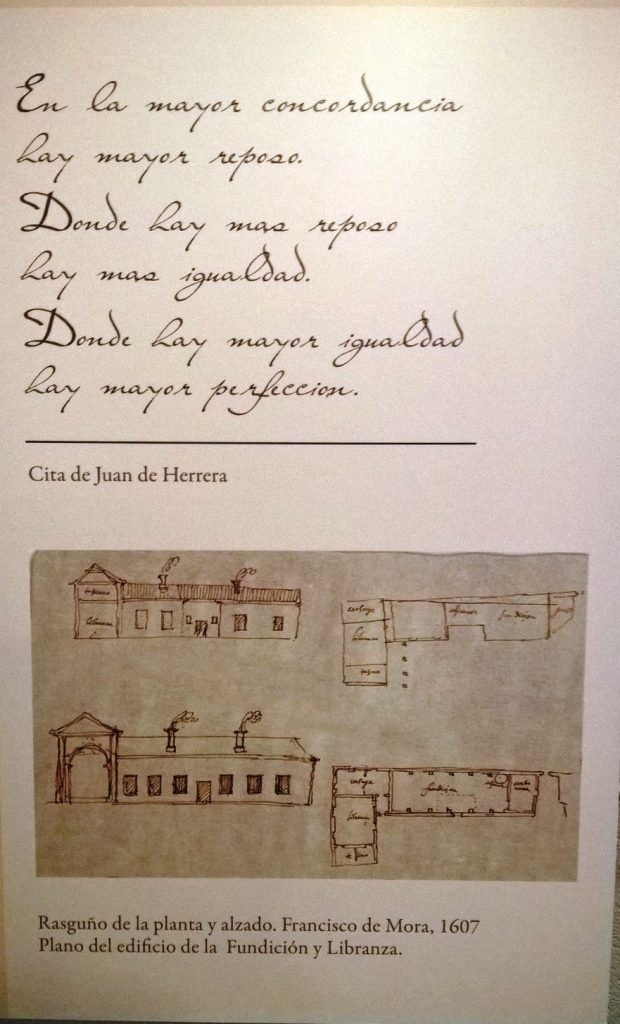 En la mayor concordancia
hay mayor reposo.
Donde hay mas reposo
hay mas igualdad.
Donde hay mayor igualdad
hay mayor perfeccion.
Cita de Juan de Herrera
fundicion
Rasguño de la planta y alzado. Francisco de Mora, 1607
Plano del edificio de la Fundición y Libranza.